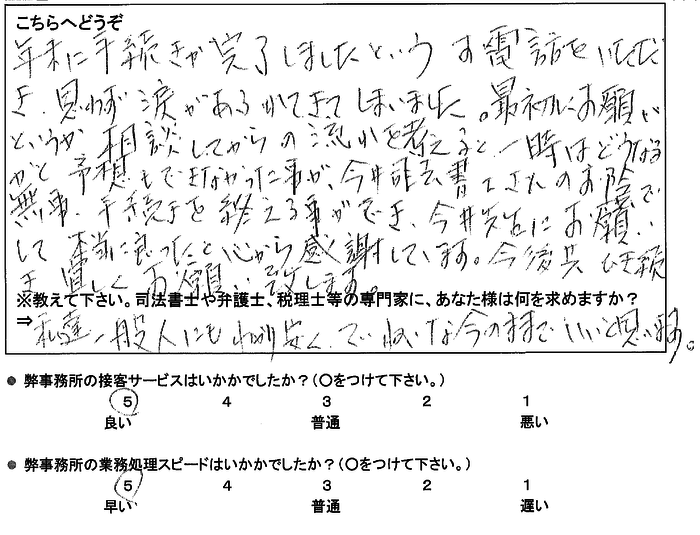 こちらへどうぞ
年末に手続きが完了しましたという お電話をいただ
き、思わず 涙が
でてきてしまいました。最初にお願い
というか 相談してからの流れを考えると、一時はどうなる
かと 予想もできなかった事が、今井司法書士さんのお陰で
無事、手続きを終える事ができ、今井先生にお願い
して 本当に良かったと心から感謝しています。今後共 ひき続
き宜しくお願い致します。
※教えて下さい。司法書士や弁護士、税理士等の専門家に、あなた様は何を求めますか？
⇒ 私達一般人にもわかり安く、ていねいな今のままでいいと思います。
● 弊事務所の接客サービスはいかかでしたか？（○をつけて下さい。）
5 4 3 2 1
良い 普通 悪い
● 弊事務所の業務処理スピードはいかかでしたか？（○をつけて下さい。）
5 4 3 2 1
早い 普通 遅い